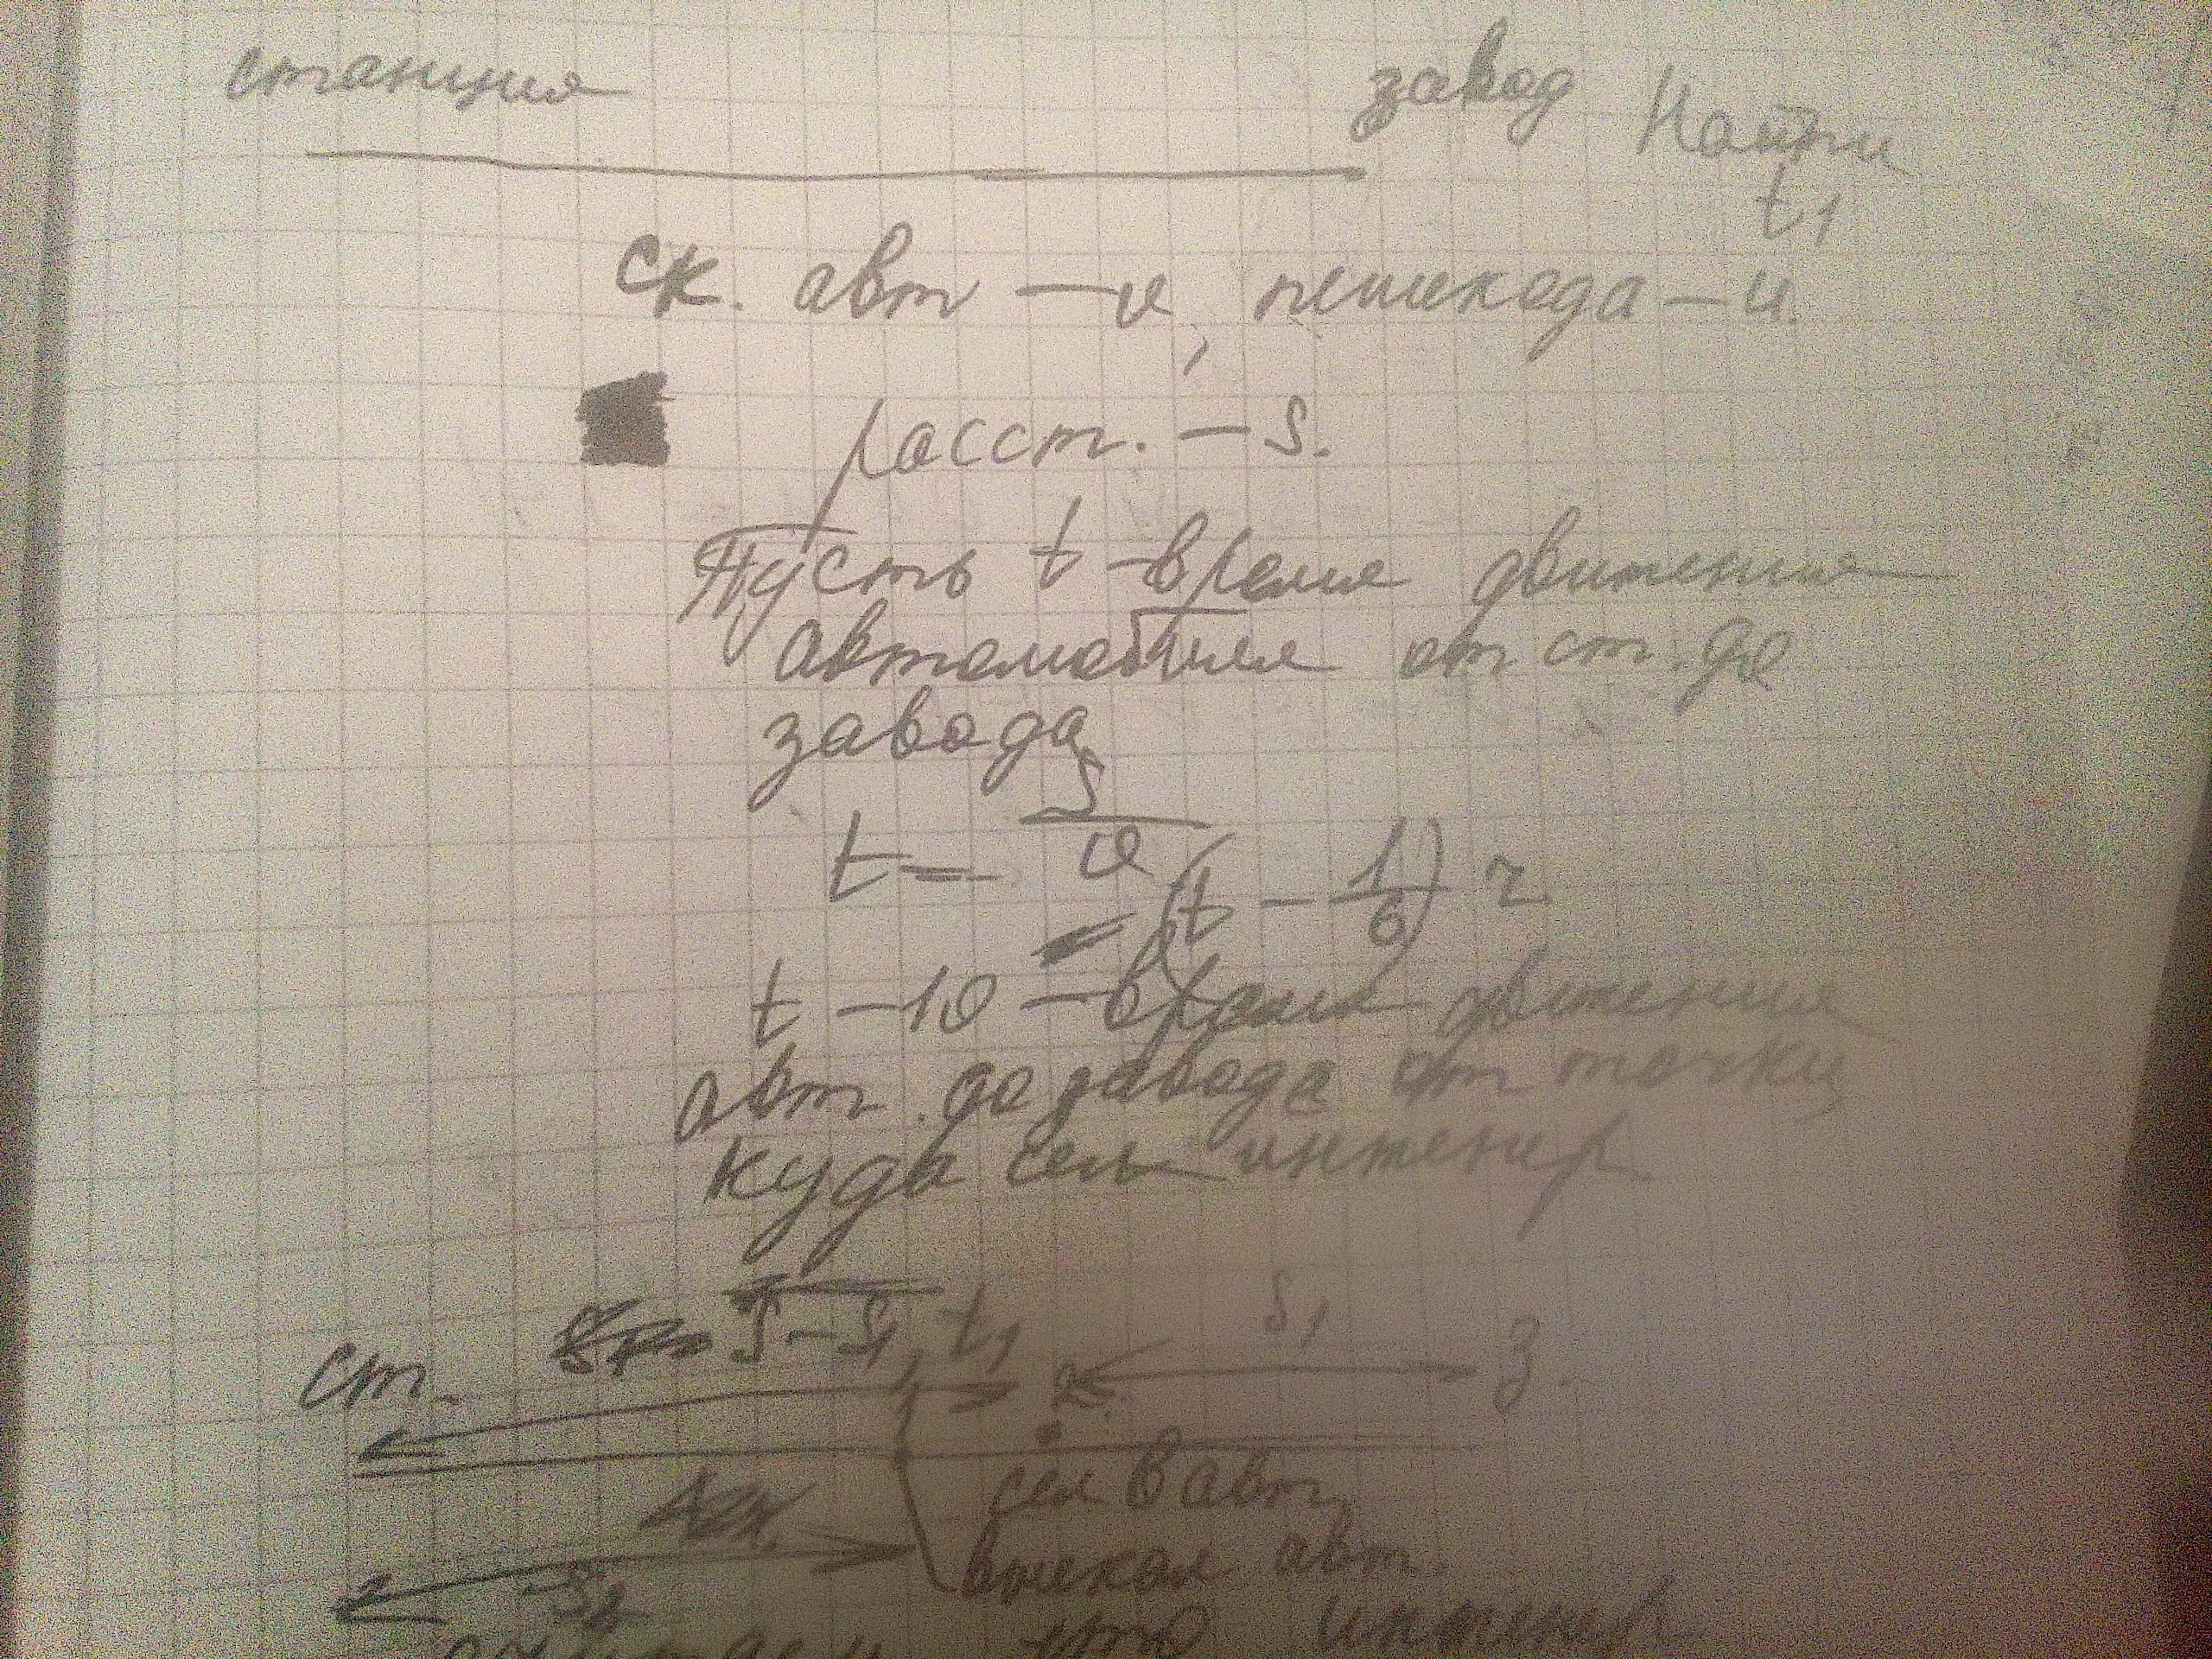 станция завод Найти
t1
ск. авт – v, пешехода – u.
расст. – S.
Пусть t – время движения
автомобиля от ст. до
завода
t = S/v
= (t – 1/6) ч
t – 10 – время движения
авт. до завода от точки
куда сел инженер
ст. S – S1, t1 S1 З.
сел в авт.
выехал авт.
S2
что инженер